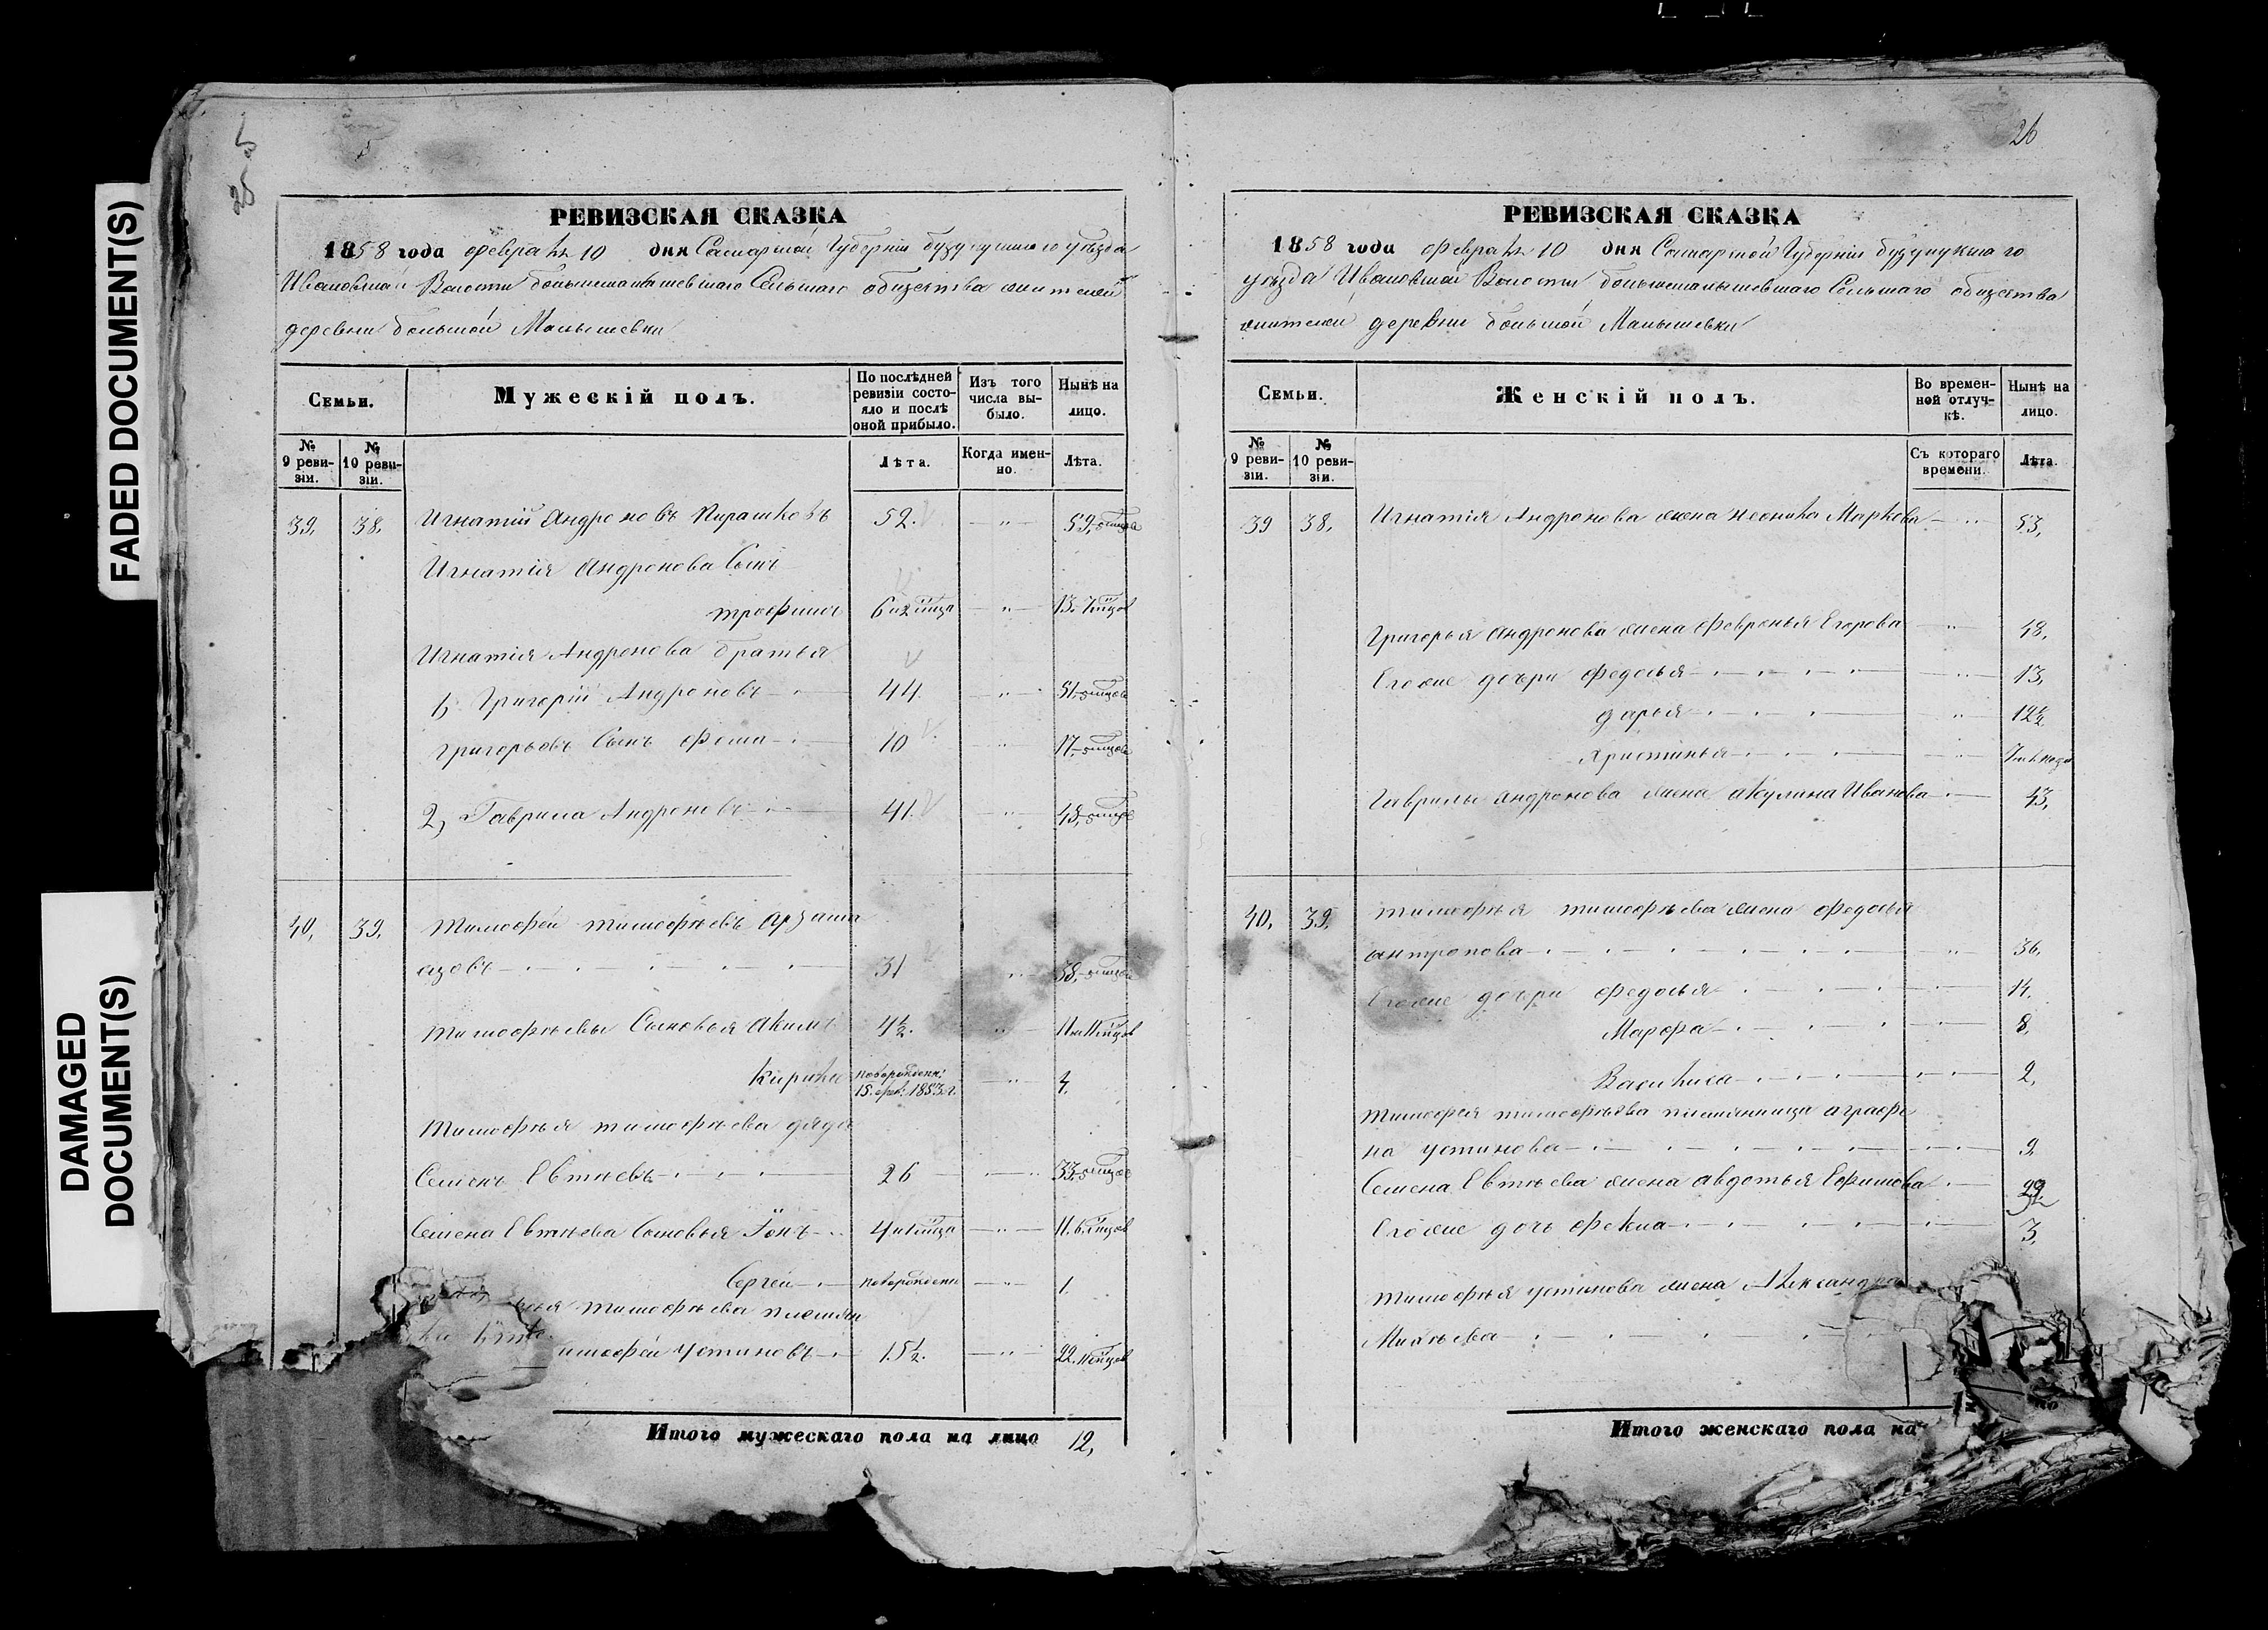 FADED DOCUMENT(S)
DAMAGED
DOCUMENT(S)
25
РЕВИЗСКАЯ СКАЗКА
1858 года февраля 10 дня Самарской Губерніи бузулукскаго уѣзда
Ивановской Волости большемалышевскаго Сельскаго общества жителей
деревни большой Малышевки
Семьи.
Мужескій полъ.
По послѣдней ревизіи состояло и послѣ оной прибыло.
Изъ того числа выбыло.
Нынѣ на лицо.
№ 9 ревизіи.
№ 10 ревизіи.
Лѣта.
Когда именно.
Лѣта.
39, 38, Игнатій Андроновъ 52. — " — 59,
Игнатія Андронова Сынъ
трофимъ 6 и 2 м̃ца — " — 13. 7 м̃цов
Игнатія Андронова братья
1, Григорій Андроновъ 44. — " — 51,
григорьевъ Сынъ фома 10 " 17,
2, Гаврила Андроновъ 41. — " — 48,
40, 39, тимофей тимофѣевъ арзама
азовъ 31 " 38,
тимофѣевы Сыновья Акимъ 4½. " 11 и 11 м̃цов
Кирила новорожден: 15. фев: 1853. г. — " — 4.
тимофѣя тимофѣева дядя
Семенъ Евтѣевъ 26 — " 33,
Семена Евтѣева Сыновья Іонъ 4 и 1 м̃ца — " — 11. 6. м̃цов
Сергей новорожден — " — 1.
тимофѣева племян
тимофей Устиновъ 15½. — " — 22. 11 м̃цов
Итого мужескаго пола на лицо 12,
26
РЕВИЗСКАЯ СКАЗКА
1858 года февраля 10 дня Самарской Губерніи бузулукскаго
уѣзда Ивановской Волости большемалышевскаго Сельскаго общества
жителей деревни большой Малышевки
Семьи.
Женскій полъ.
Во временной отлучкѣ.
Нынѣ на лицо.
№ 9 ревизіи.
№ 10 ревизіи.
Съ котораго времени.
Лѣта.
39 38, Игнатія Андронова жена Маркова — " 53,
григорья андронова жена февронья Егорова " 48,
Его же дочери федосья " 13,
дарья " 12½
христинья " 7
гаврилы андронова жена акулина Иванова 43,
40, 39, тимофѣя тимофѣева жена федосья
антропова " 36,
Его же дочери федосья 14.
Марфа 8,
Василиса 2,
тимофея тимофѣева племянница аграфе
на устинова 9,
Семена Евтѣева жена авдотья Ефимова 29
Его же дочь фекла 3,
тимофѣя устинова жена Александра
Михѣева
Итого женскаго пола на